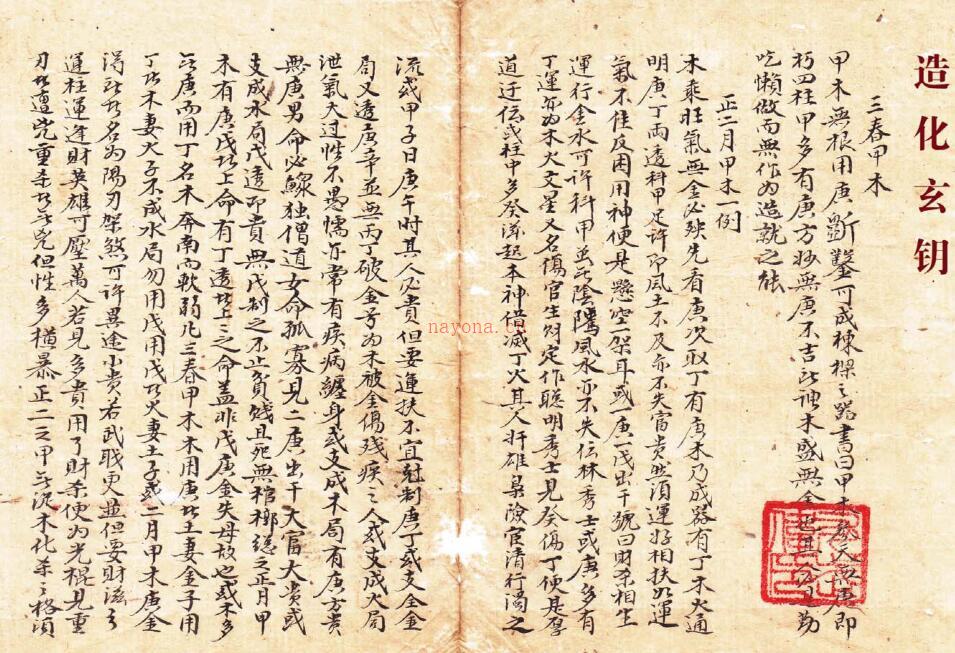 造化玄钥
三春甲木
甲木無根用庚斲鑿可成棟樑之器書曰甲木參天無庚即
朽四柱甲多有庚方妙無庚不吉
吃懶做而無作為造就之能
正二月甲木一例
木乘旺氣無金必殃先看庚次取丁有庚木乃成器有丁木火通
明庚丁兩透科甲定許即風土不及亦不失富貴然須運好相扶如運
氣不佳反困用神便是懸空一架耳或一庚一戊出干號曰財杀相生
運行金水可許科甲虽陰隲風水亦不失伝林秀士或庚多有
丁運亦為木火文星又名傷官生財定作聰明秀士見癸傷丁便是厚
道迂伝或柱中多癸滋起木神借滅丁火其人奸雄梟險宦清行濁之
流或甲子日庚午時其人必貴但要運扶不宜尅制庚丁或支金
局又透庚辛並無丙丁破金号為木被金傷残疾之人或支成火局
泄氣太过性不愚懦亦常有疾病纏身或支成木局有庚方貴
無庚男命必鰥独僧道女命孤寡見二庚出干大富大貴或
支成水局戊透即貴無戊制之不止貧賤且死無棺槨總之正月甲
木有庚戊者上命有丁透者上之命蓋非戊庚金失母故也或木多
無庚而用丁名木奔南而軟弱凡三春甲木木用庚者土妻金子用
丁者木妻火子木成水局勿用戊用戊者火妻土子或二月甲木庚金
得所者名為陽刃架煞可許異途小貴右武职更並但要財滋〻
運柱運逢財英雄可壓萬人若見多貴用了財杀便為光棍見重
刃者遭凶重杀者至死但性多横暴正二之甲無泥木化杀之格須
nayona.cn